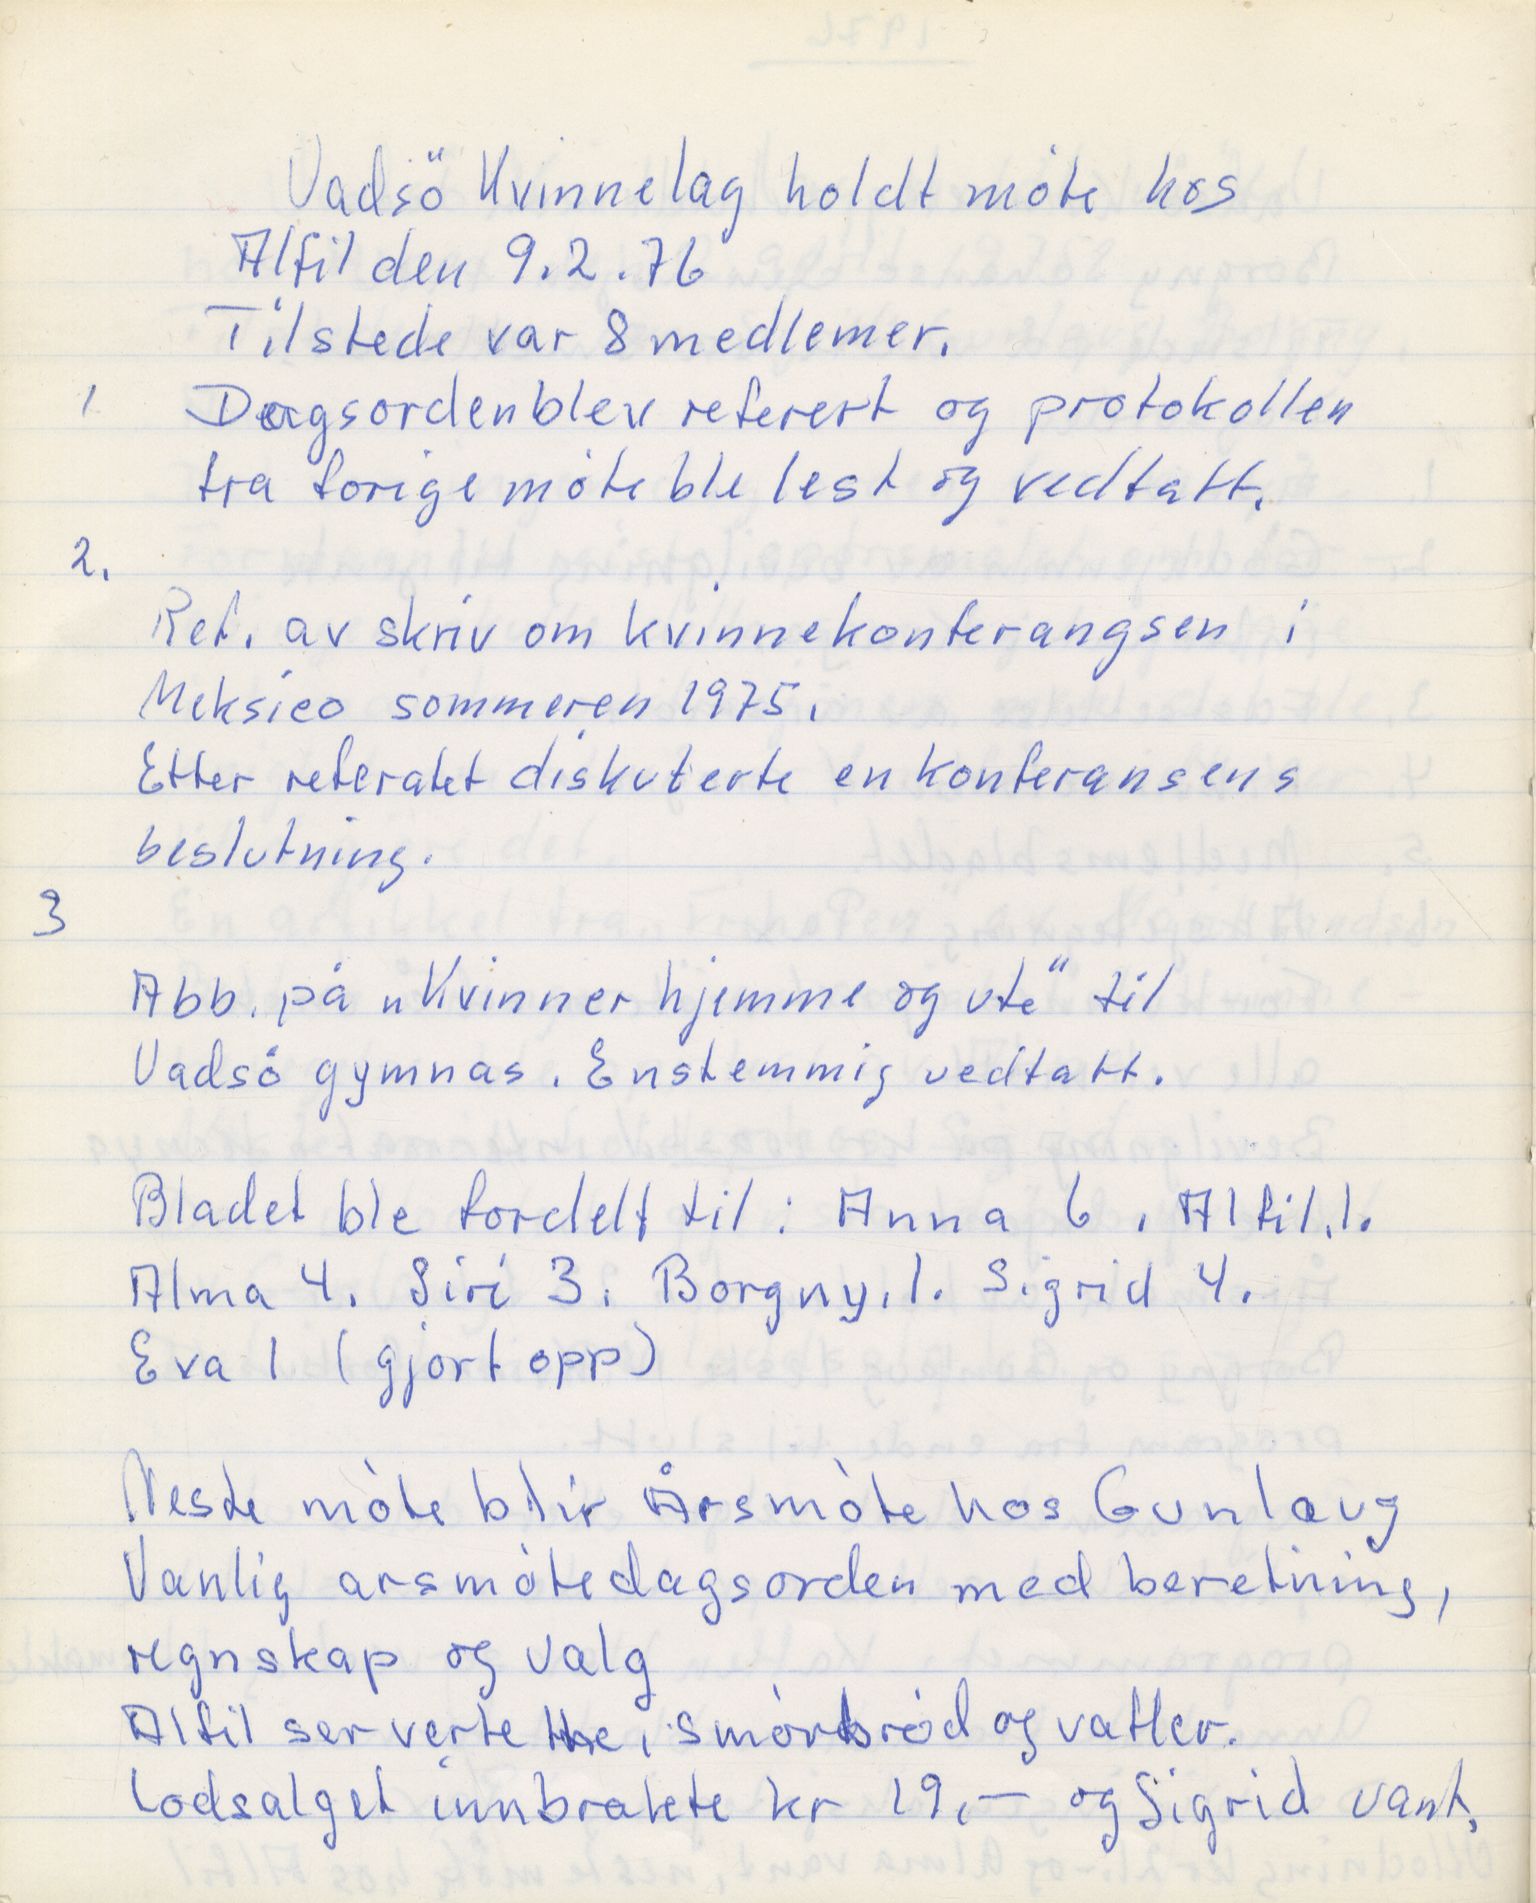 Vadsö Kvinnelag holdt møte hos
Alfil den 9.2.76
Tilstede var 8 medlemer.
1 Dagsorden blev referert og protokollen
fra forige møte ble lest og vedtatt.
2.
Ref. av skriv om kvinnekonferangsen i
Meksico sommeren 1975.
Etter referatet diskuterte en konferansens
beslutning.
3
Abb. på „Kvinner hjemme og ute" til
Vadsø gymnas. Enstemmig vedtatt.
Bladet ble fordelt til: Anna 6. Alfil.1.
Alma 4. Siri 3. Borgny.1. Sigrid 4.
Eva 1 (gjort opp)
Neste møte blir Årsmøte hos Gunlaug
Vanlig arsmøtedagsorden med beretning,
regnskap og valg
Alfil serverte the, smørbrød og vafler.
Lodsalget innbrakte kr 19.- og Sigrid vant.